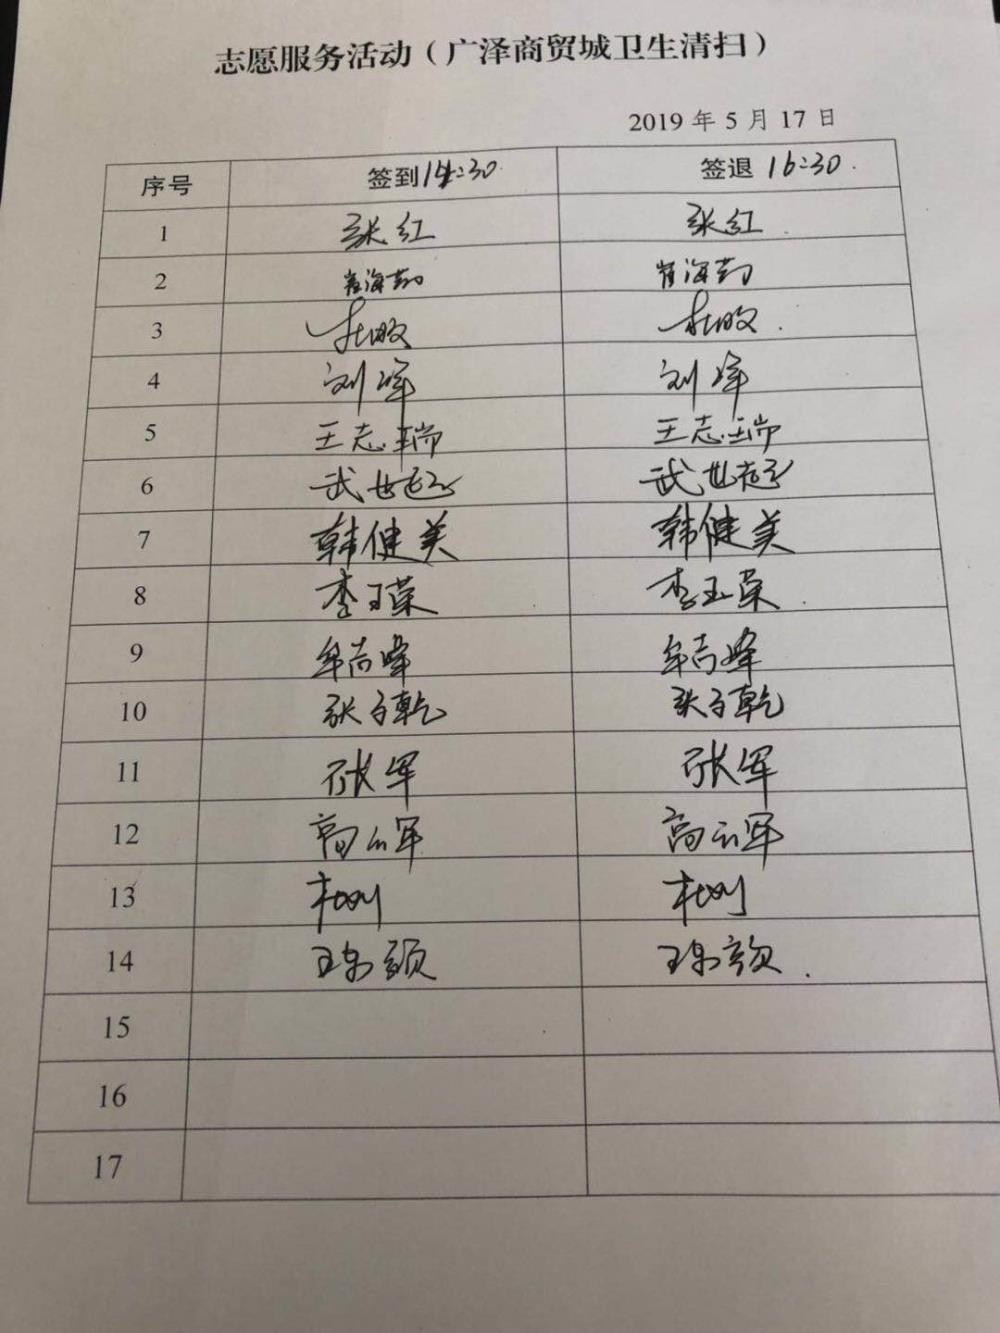 志愿服务活动（广泽商贸城卫生清扫）
2019 年 5 月 17 日
序号 签到14:30 签退 16:30.
1 张红 张红
2 崔海 崔海
3 杜 杜
4 刘军 刘军
5 王志瑞 王志瑞
6 武世超 武世超
7 韩健美 韩健美
8 李玉荣 李玉荣
9 牟尚峰 牟尚峰
10 张子乾 张子乾
11 张军 张军
12 高云军 高云军
13 杜刚 杜刚
14 颖 颖
15
16
17